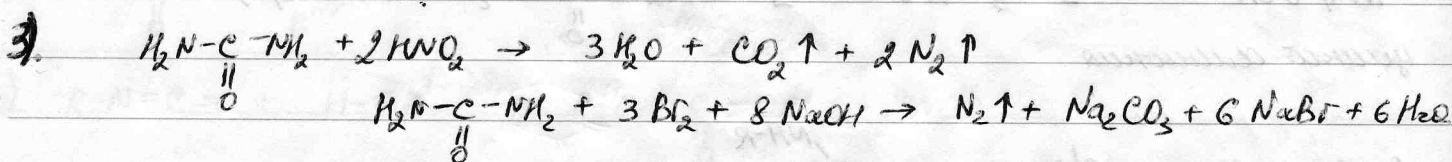 3). H₂N-C-NH₂ + 2HNO₂ → 3H₂O + CO₂↑ + 2N₂↑
||
O
H₂N-C-NH₂ + 3Br₂ + 8NaOH → N₂↑ + Na₂CO₃ + 6NaBr + 6H₂O
||
O